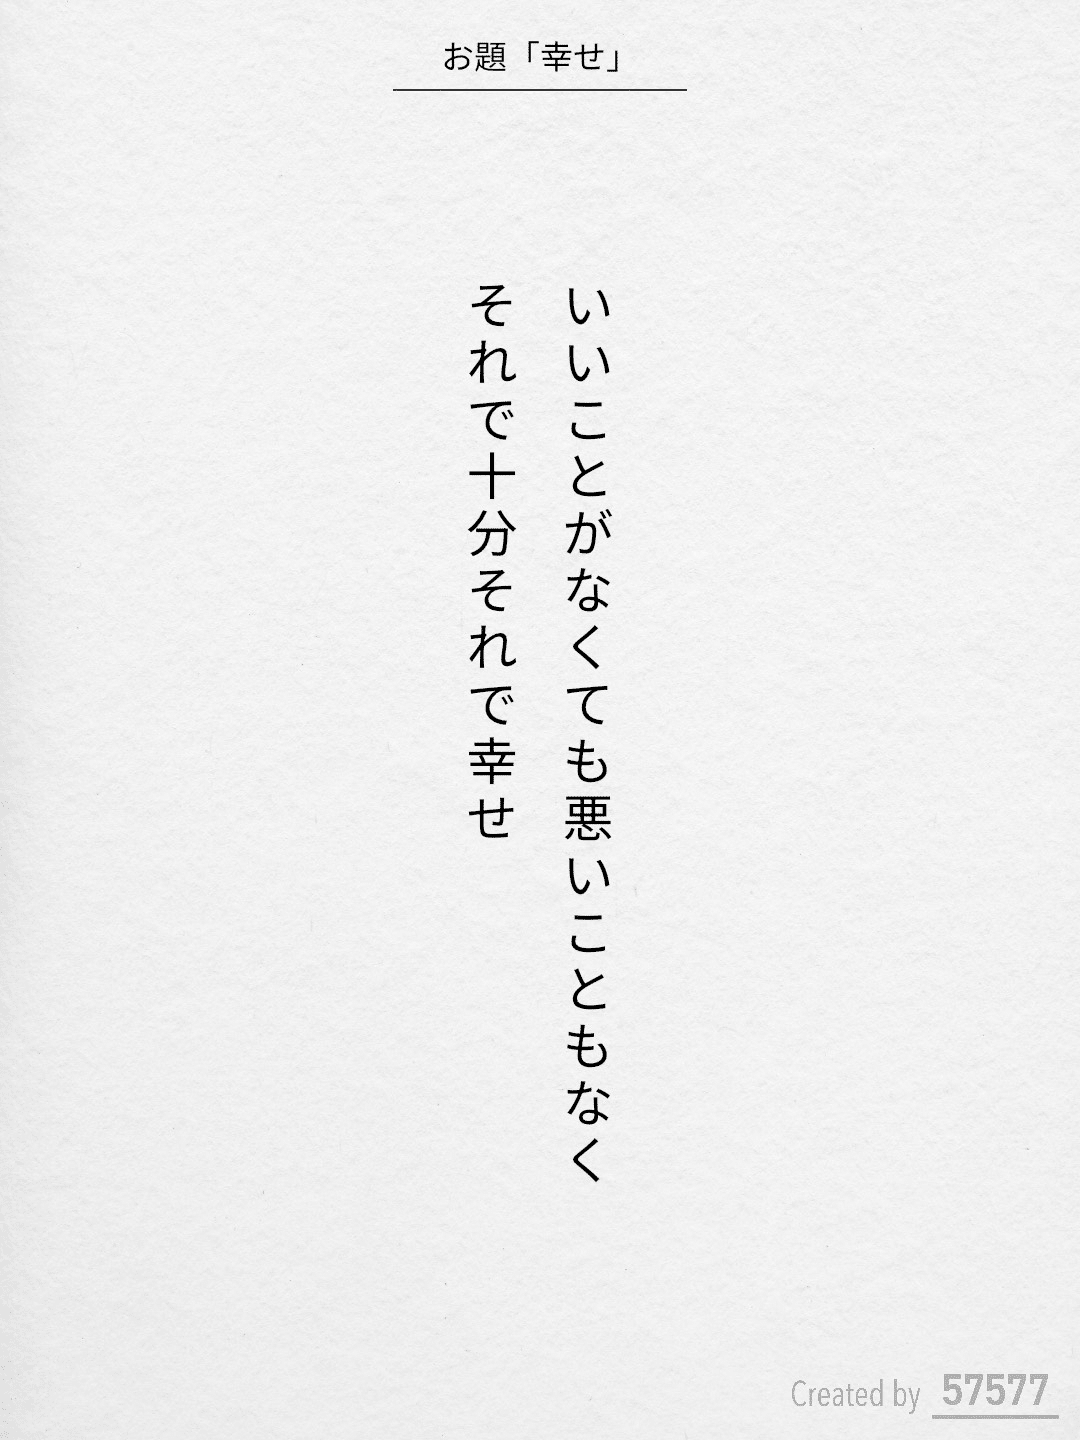 お題「幸せ」
いいことがなくても悪いこともなく
それで十分それで幸せ
Created by 57577